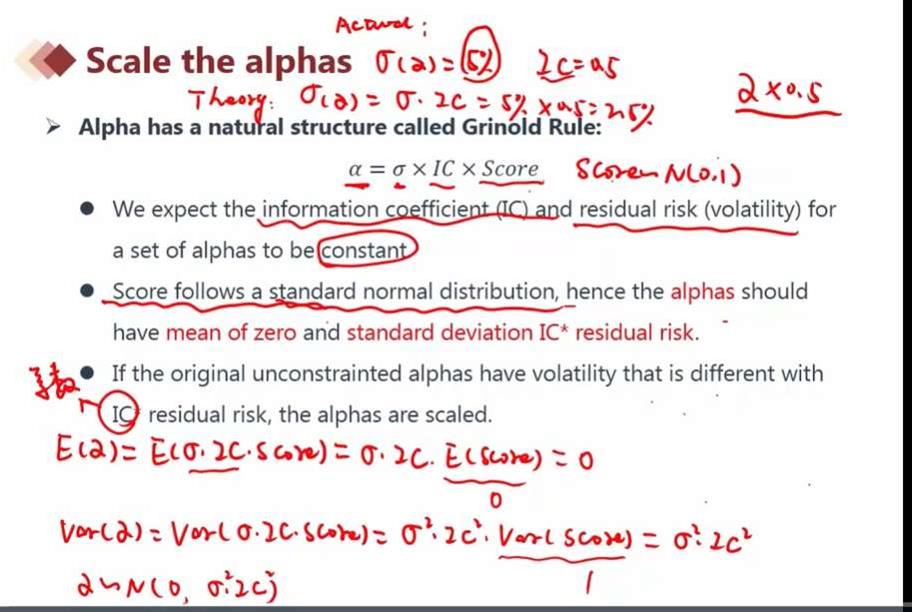 Actual:
Scale the alphas σ(α)=5% IC=0.5
Theory: σ(α)=σ·IC=5%×0.5=2.5%
2×0.5
➢ Alpha has a natural structure called Grinold Rule:
α = σ × IC × Score Score~N(0,1)
● We expect the information coefficient (IC) and residual risk (volatility) for
a set of alphas to be constant
● Score follows a standard normal distribution, hence the alphas should
have mean of zero and standard deviation IC* residual risk.
● If the original unconstrained alphas have volatility that is different with
IC* residual risk, the alphas are scaled.
E(α)=E(σ·IC·Score)=σ·IC·E(Score)=0
0
Var(α)=Var(σ·IC·Score)=σ²·IC²·Var(Score)=σ²·IC²
1
α~N(0, σ²·IC²)